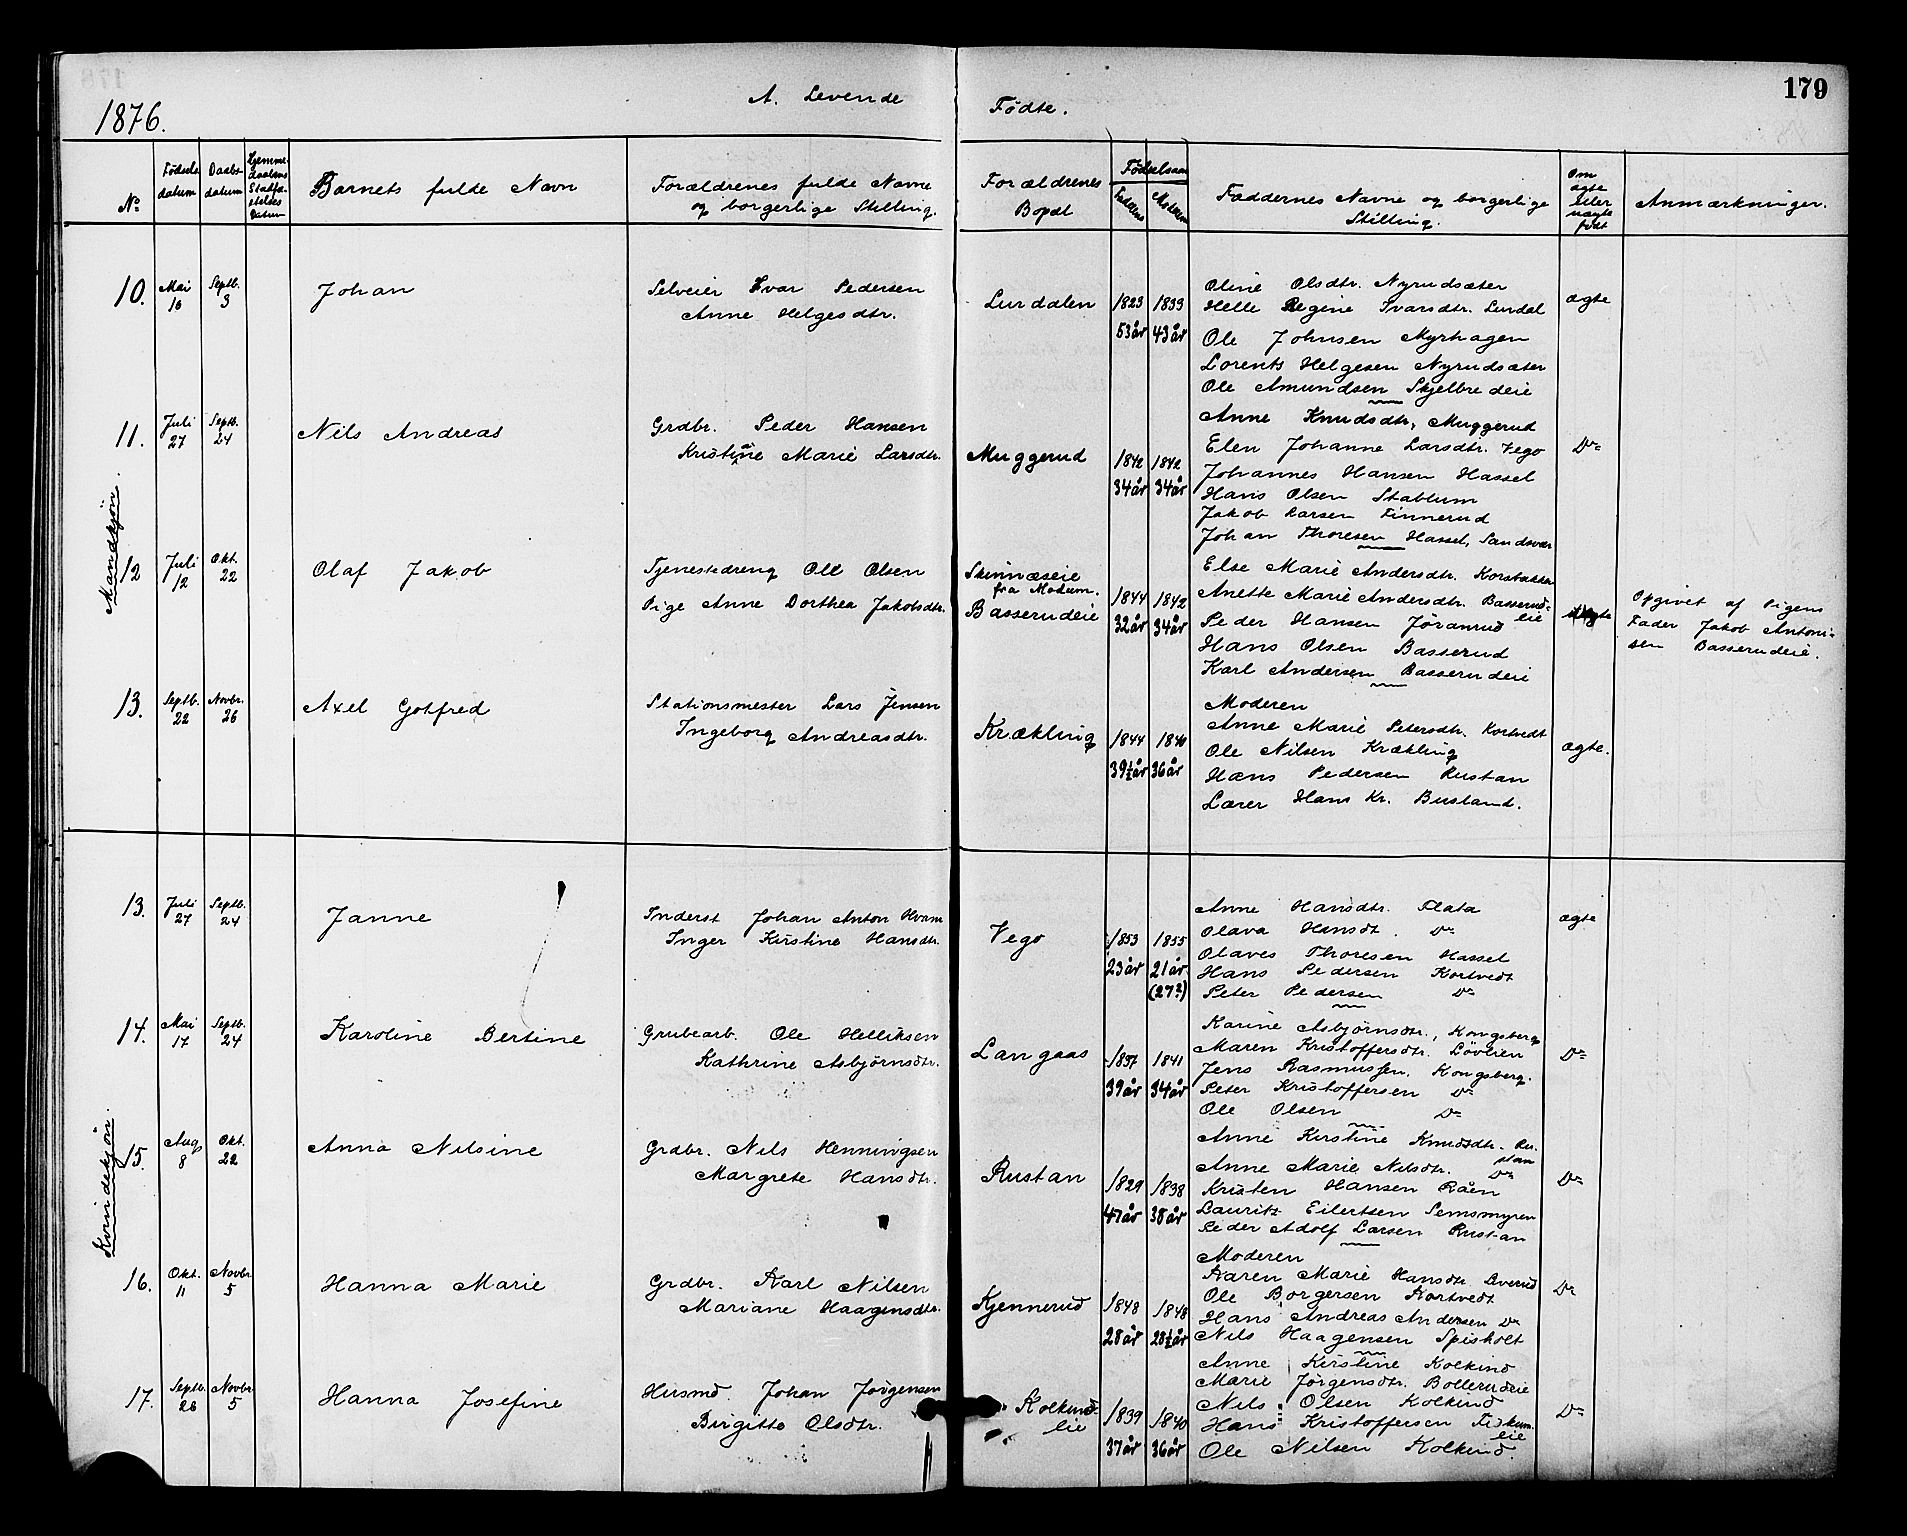 179
1876.
A. Levende Fødte.
No
Fødsels datum
Daabs datum
Hjemme daabens Stadfæstelses Datum
Barnets fulde Navn
Forældrenes fulde Navne og borgerlige Stilling.
Forældrenes Bopæl
Fødselsaar
Faderens
Moderens
Faddernes Navne og borgerlige Stilling.
Om ægte eller uægte født
Anmærkninger.
Mandkjøn.
10. Mai 16 Septb. 3 Johan
Selveier Ivar Pedersen
Anne Helgesdtr.
Lurdalen 1823 1833
53år 43år
Oline Olsdtr. Nyrudsæter
Helle Regine Ivarsdtr. Lurdal
Ole Johnsen Myrhagen
Lorents Helgesen Nyrudsæter
Ole Amundsen Skjelbredeie
ægte
11. Juli 27 Septb. 24 Nils Andreas
Grdbr. Peder Hansen
Kristiane Marie Larsdtr.
Muggerud 1842 1842
34år 34år
Anne Knudsdtr, Muggerud
Elen Johanne Larsdtr. Vego
Johannes Hansen Hassel
Hans Olsen Stablum
Jakob Larsen Finnerud
Johan Thoresen Hassel, Sandsvær
Do
12 Juli 12 Okt. 22 Olaf Jakob
Tjenestedreng Ole Olsen
Pige Anne Dorthea Jakobsdtr.
fra Modum.
Basserudeie 1844 1842
32år 34år
Else Marie Andersdtr.
Anette Marie Andersdtr. Basserud-
eie
Peder Hansen Jöranrud
Hans Olsen Basserud
Karl Andersen Basserudeie
uægte
Opgivet af Pigens
Fader Jakob Antoni-
sen Basserudeie.
13. Septb. 22 Novbr. 26 Axel Gotfred
Stationsmester Lars Jensen
Ingeborg Andreasdtr.
Krækling 1844 1840
39½år 36år
Moderen
Anne Marie Petersdtr. Kortvedt
Ole Nilsen Krækling
Hans Pedersen Rustan
Lærer Hans Kr. Busland.
ægte.
Kvindekjøn.
13. Juli 27 Septb. 24 Janne
Inderst Johan Anton Hvam
Inger Kirstine Hansdtr.
Vego 1853 1855
23år 21år
(27?)
Anne Hansdtr. Flata
Olava Hansdt. Do
Olaves Thoresen Hassel
Hans Pedersen Kortvedt
Peter Pedersen Do
ægte
14. Mai 17 Septb. 24 Karoline Bertine
Grubearb. Ole Helliksen
Kathrine Asbjørnsdtr.
Langaas 1837 1841
39år 34år
Karine Asbjørnsdtr., Kongsberg
Maren Kristoffersdtr. Løvlien
Jens Rasmussen. Kongsberg.
Peter Kristoffersen Do
Ole Olsen Do
Do
15. Aug 8 Okt. 22 Anna Nilsine
Grdbr. Nils Henningsen
Margrete Hansdtr.
Rustan 1829 1838
47år 38år
Anne Kirstine Knudsdtr. Ru-
stan
Anne Marie Nilsdtr. Do
Kristen Hansen Råen
Lauritz Eilertsen Semsmyren
Peder Adolf Larsen Rustan
Do
16. Okt. 11 Novbr 5 Hanna Marie
Grdbr. Karl Nilsen
Mariane Haagensdtr.
Kjennerud 1848 1848
28år 28½år
Moderen
Karen Marie Hansdtr.
Ole Borgersen Kortvedt
Hans Andreas Andersen Do
Nils Haagensen Spisholt
Do
17. Septb. 26 Novbr 5 Hanna Josefine
Husmd Johan Jørgensen
Birgitte Olsdtr.
Kolkind-
eie 1839 1840
37år 36år
Anne Kirstine Kolkind
Marie Jørgensdtr. Bollerudeie
Nils Olsen Kolkind
Hans Kristoffersen Fiskum-
eie
Ole Nilsen Kolkind.
Do